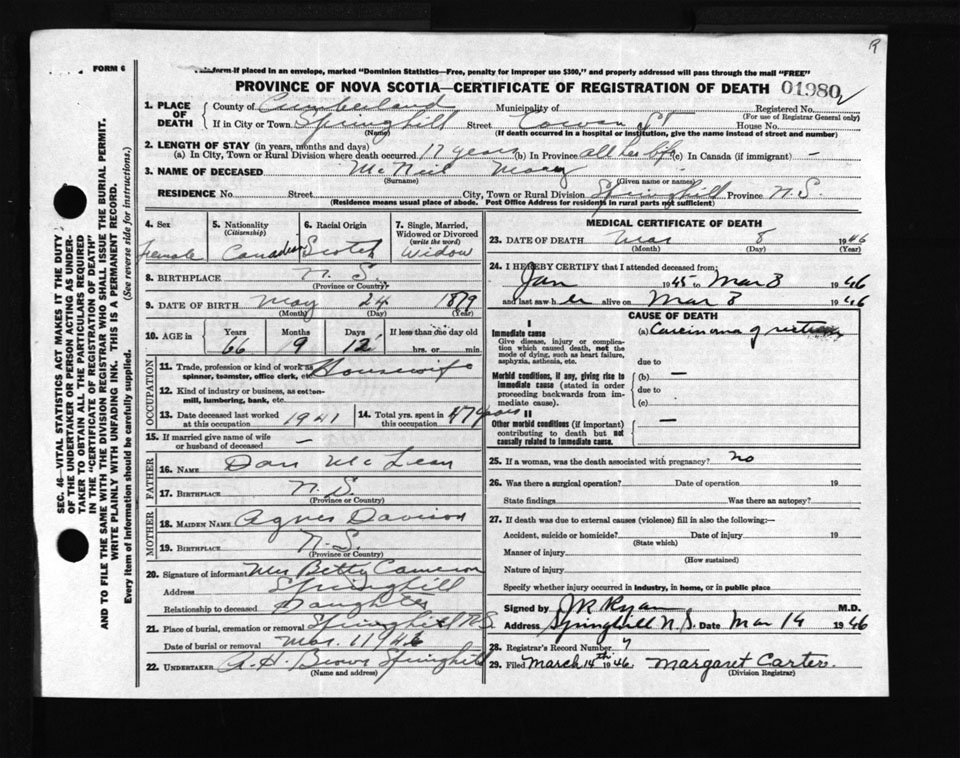 R
FORM 6
form if placed in an envelope, marked "Dominion Statistics—Free, penalty for improper use $300," and properly addressed will pass through the mail "FREE"
PROVINCE OF NOVA SCOTIA—CERTIFICATE OF REGISTRATION OF DEATH 01980
1. PLACE OF DEATH County of Cumberland Municipality of Registered No. (For use of Registrar General only)
If in City or Town Springhill (Name) Street Cowan St House No. (If death occurred in a hospital or institution, give the name instead of street and number)
2. LENGTH OF STAY (in years, months and days)
(a) In City, Town or Rural Division where death occurred 17 years (b) In Province all her life (c) In Canada (if immigrant) —
3. NAME OF DECEASED McNeil (Surname) Mary (Given name or names)
RESIDENCE No. Street City, Town or Rural Division Springhill Province N.S.
(Residence means usual place of abode. Post Office Address for residents in rural parts not sufficient)
4. Sex Female
5. Nationality (Citizenship) Canadian
6. Racial Origin Scotch
7. Single, Married, Widowed or Divorced (write the word) Widow
8. BIRTHPLACE N.S. (Province or Country)
9. DATE OF BIRTH May 24 1879
(Month) (Day) (Year)
10. AGE in Years 66 Months 9 Days 12 If less than one day old hrs. or min.
OCCUPATION
11. Trade, profession or kind of work as spinner, teamster, office clerk, etc. Housewife
12. Kind of industry or business, as cotton-mill, lumbering, bank, etc.
13. Date deceased last worked at this occupation 1941
14. Total yrs. spent in this occupation 47 years
15. If married give name of wife or husband of deceased —
FATHER
16. NAME Dan McLean
17. BIRTHPLACE N.S. (Province or Country)
MOTHER
18. MAIDEN NAME Agnes Davison
19. BIRTHPLACE N.S. (Province or Country)
20. Signature of informant Mrs Betty Cameron
Address Springhill
Relationship to deceased Daughter
21. Place of burial, cremation or removal Springhill N.S.
Date of burial or removal Mar. 11 1946
22. UNDERTAKER A.H. Brown Springhill
(Name and address)
MEDICAL CERTIFICATE OF DEATH
23. DATE OF DEATH Mar 8 1946
(Month) (Day) (Year)
24. I HEREBY CERTIFY that I attended deceased from:
Jan 1945 to Mar 8 1946
and last saw h er alive on Mar 8 1946
CAUSE OF DEATH
I
Immediate cause
Give disease, injury or complication which caused death, not the mode of dying, such as heart failure, asphyxia, asthenia, etc.
(a) Carcinoma of rectum
due to
Morbid conditions, if any, giving rise to immediate cause (stated in order proceeding backwards from immediate cause).
(b) —
due to
(c)
II
Other morbid conditions (if important) contributing to death but not causally related to immediate cause. —
25. If a woman, was the death associated with pregnancy? no
26. Was there a surgical operation? Date of operation 19
State findings Was there an autopsy?
27. If death was due to external causes (violence) fill in also the following:—
Accident, suicide or homicide? Date of injury 19
(State which)
Manner of injury
(How sustained)
Nature of injury
Specify whether injury occurred in industry, in home, or in public place
Signed by J R Ryan M.D.
Address Springhill N.S. Date Mar 14 1946
28. Registrar's Record Number 7
29. Filed March 14th 1946. Margaret Carter.
(Division Registrar)
SEC. 46—VITAL STATISTICS ACT MAKES IT THE DUTY
OF THE UNDERTAKER OR PERSON ACTING AS UNDER-
TAKER TO OBTAIN ALL THE PARTICULARS REQUIRED
IN THE "CERTIFICATE OF REGISTRATION OF DEATH"
AND TO FILE THE SAME WITH THE DIVISION REGISTRAR WHO SHALL ISSUE THE BURIAL PERMIT.
WRITE PLAINLY WITH UNFADING INK. THIS IS A PERMANENT RECORD.
Every item of information should be carefully supplied. (See reverse side for instructions.)